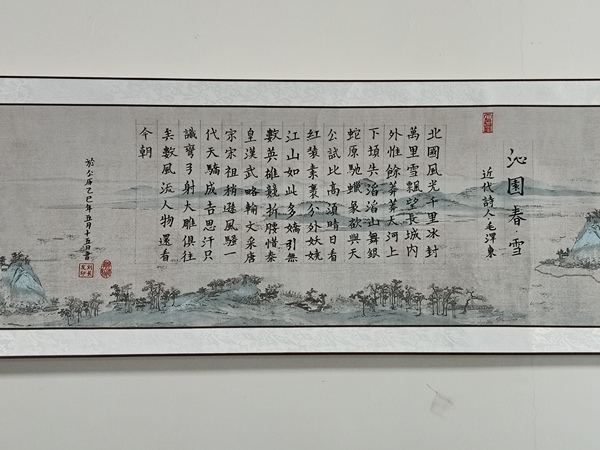 沁園春·雪
近代詩人毛澤東
北國風光千里冰封
萬里雪飄望長城内
外惟餘莽莽大河上
下頓失滔滔山舞銀
蛇原馳蠟象欲與天
公試比高須晴日看
红装素裹分外妖娆
江山如此多嬌引無
數英雄競折腰惜秦
皇漢武略輸文采唐
宗宋祖稍遜風騷一
代天驕成吉思汗只
識彎弓射大雕俱往
矣數風流人物還看
今朝
於公历乙巳年五月十五日書